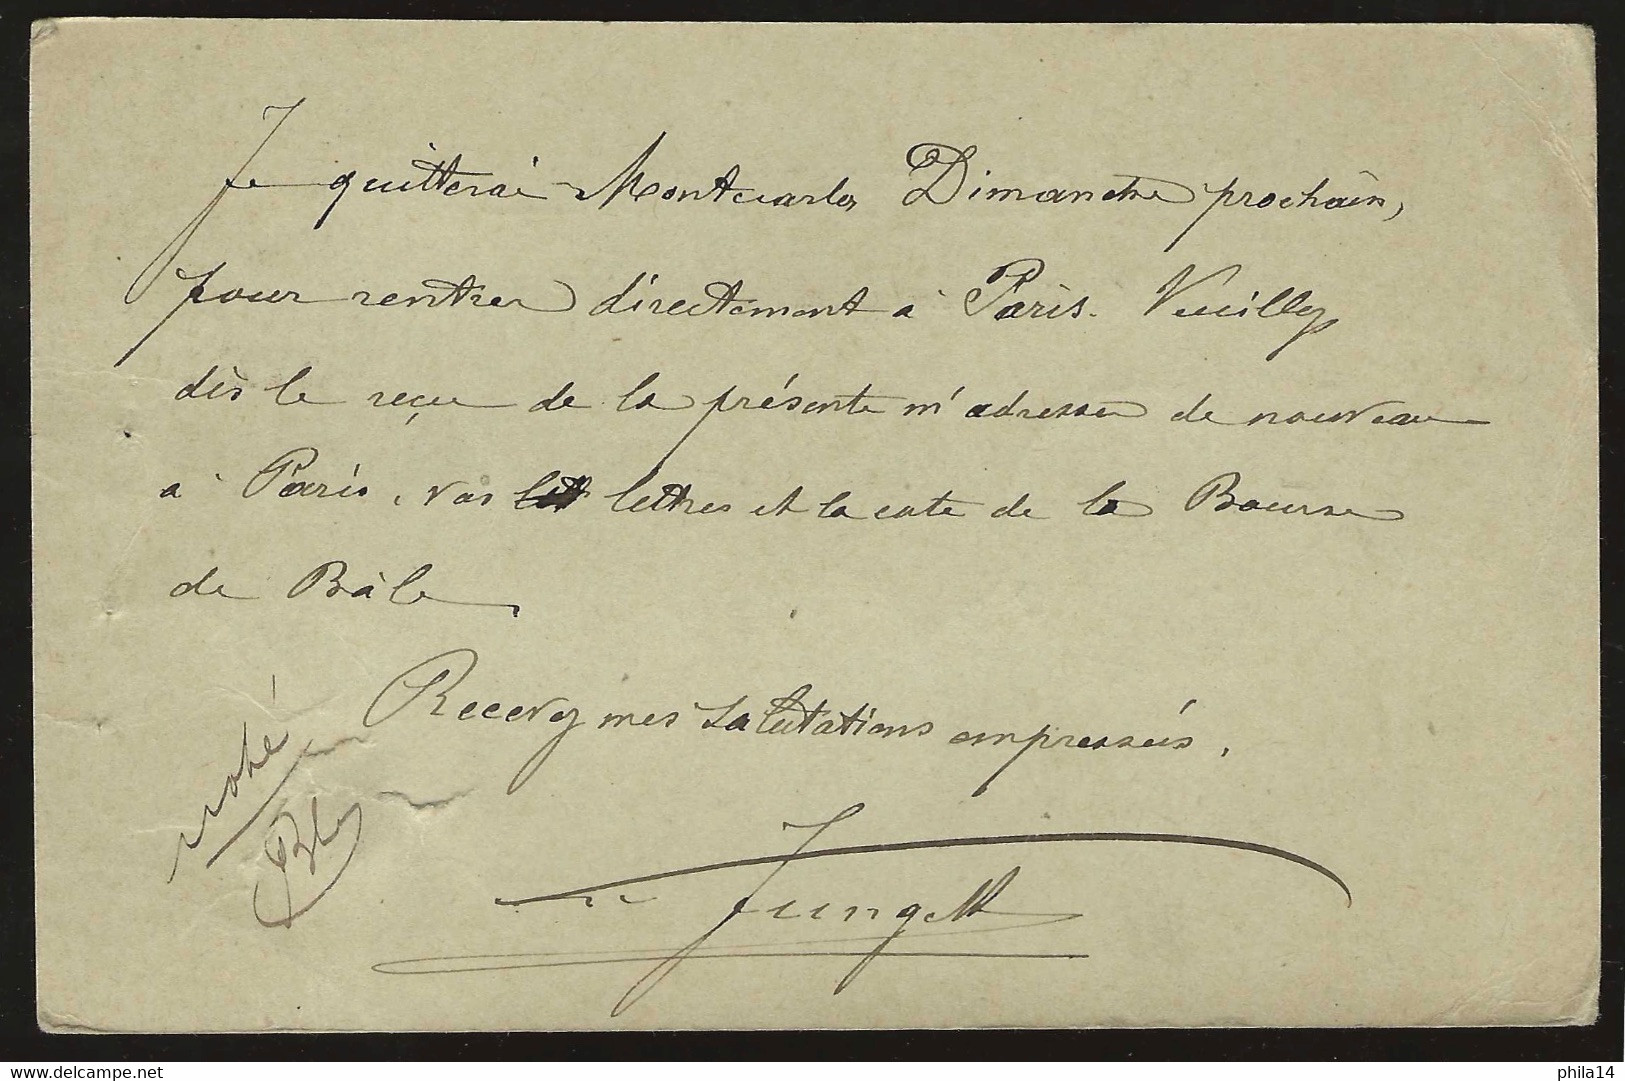 Je quitterai Montecarlo, Dimanche prochain,
pour rentrer directement à Paris. Veuillez
dès le reçu de la présente m'adresser de nouveau
à Paris, vos lettres et la cote de la Bourse
de Bâle.
Recevez mes salutations empressées.
noté
www.delcampe.net
phila14